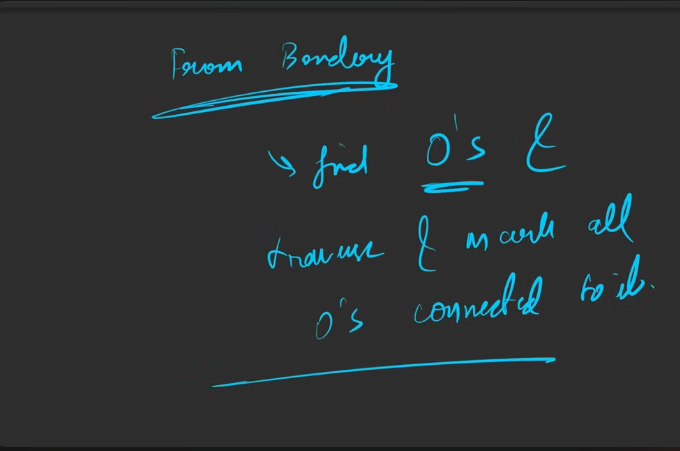 From Bondary
↳ find O's &
traverse & mark all
O's connected to it.